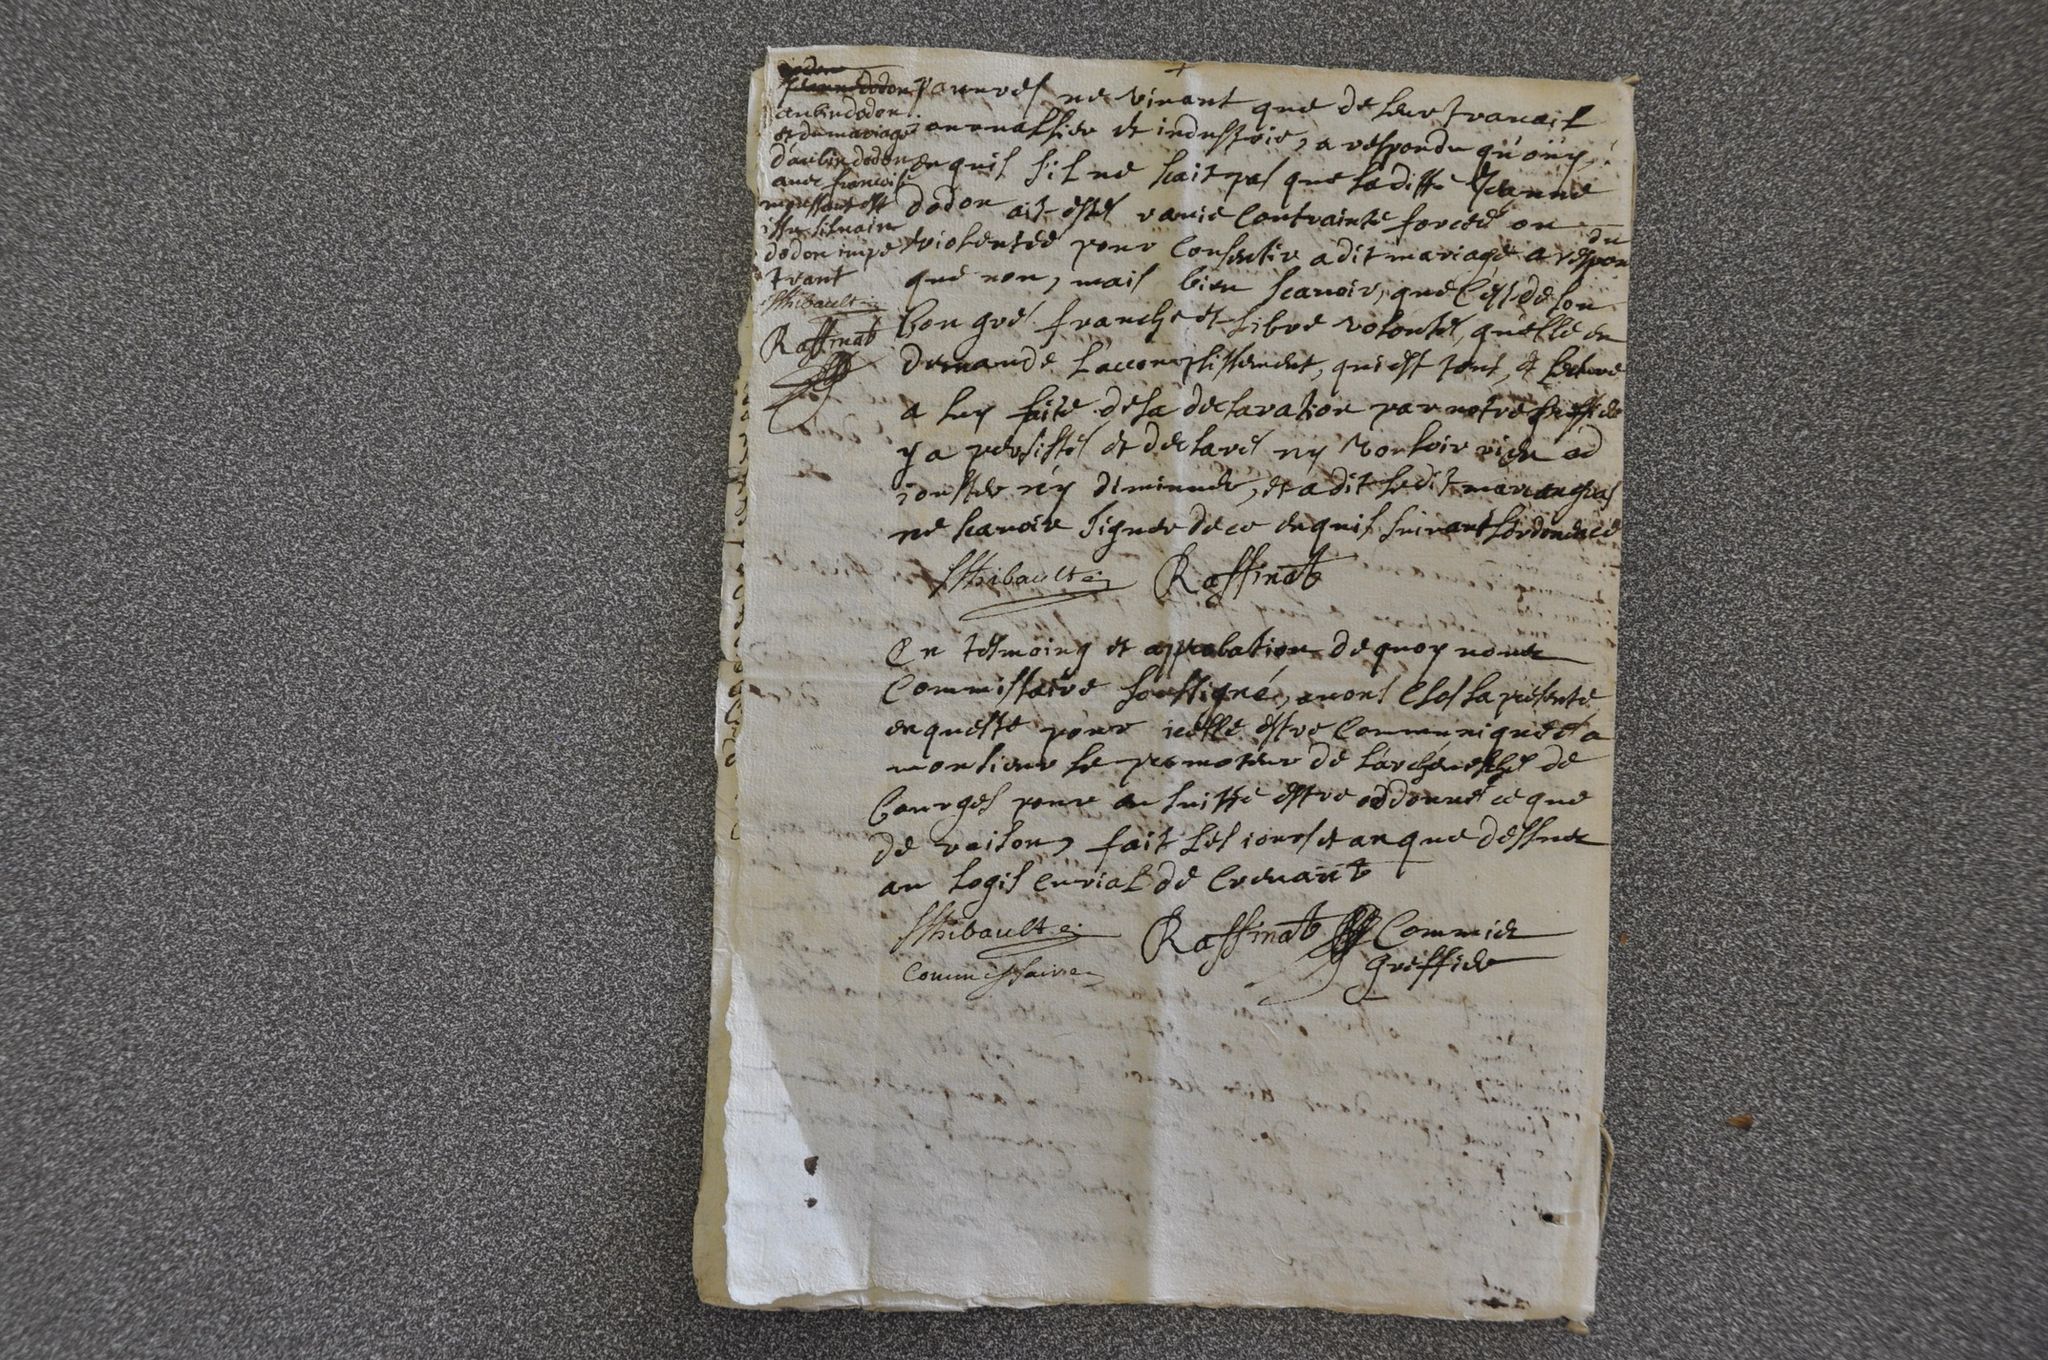 aubin dodon
et du mariage
d'aubin dodon
avec francoise
est
issu silvain
dodon impe
trant
Thibault
Raffinat
pauvres ne vivant que de leur travail
journallier et industrie, a respondu qu'ouy,
enquis s'il ne scait pas que laditte Jeanne
dodon ait estes ravie contrainte forcée ou
violentée pour consentir a dit mariage a respon du
que non, mais bien scavoir, que c'est de son
bon gres franche et libre volontés, qu'elle en
demande laccomplissement, qui est tout, et lecture
a luy faite de sa declaration par notre greffier
y a persistés et declarés ny vouloir rien ad
jouster n'y diminuer, et a dit ledit
ne scavoir signer de ce enquis suivant lordonence
Thibault Raffinat
En tesmoing et aprobation de quoy nous
Commissaire soussigné, avons clos la présente
enqueste pour icelle estre communiquées a
monsieur le promoteur de l'archevesches de
bourges pour en suitte estre ordonnes ce que
de raison, fait les jours et an que dessus
au logis curial de Crevant
Thibault Raffinat Commis
Commissaire greffier